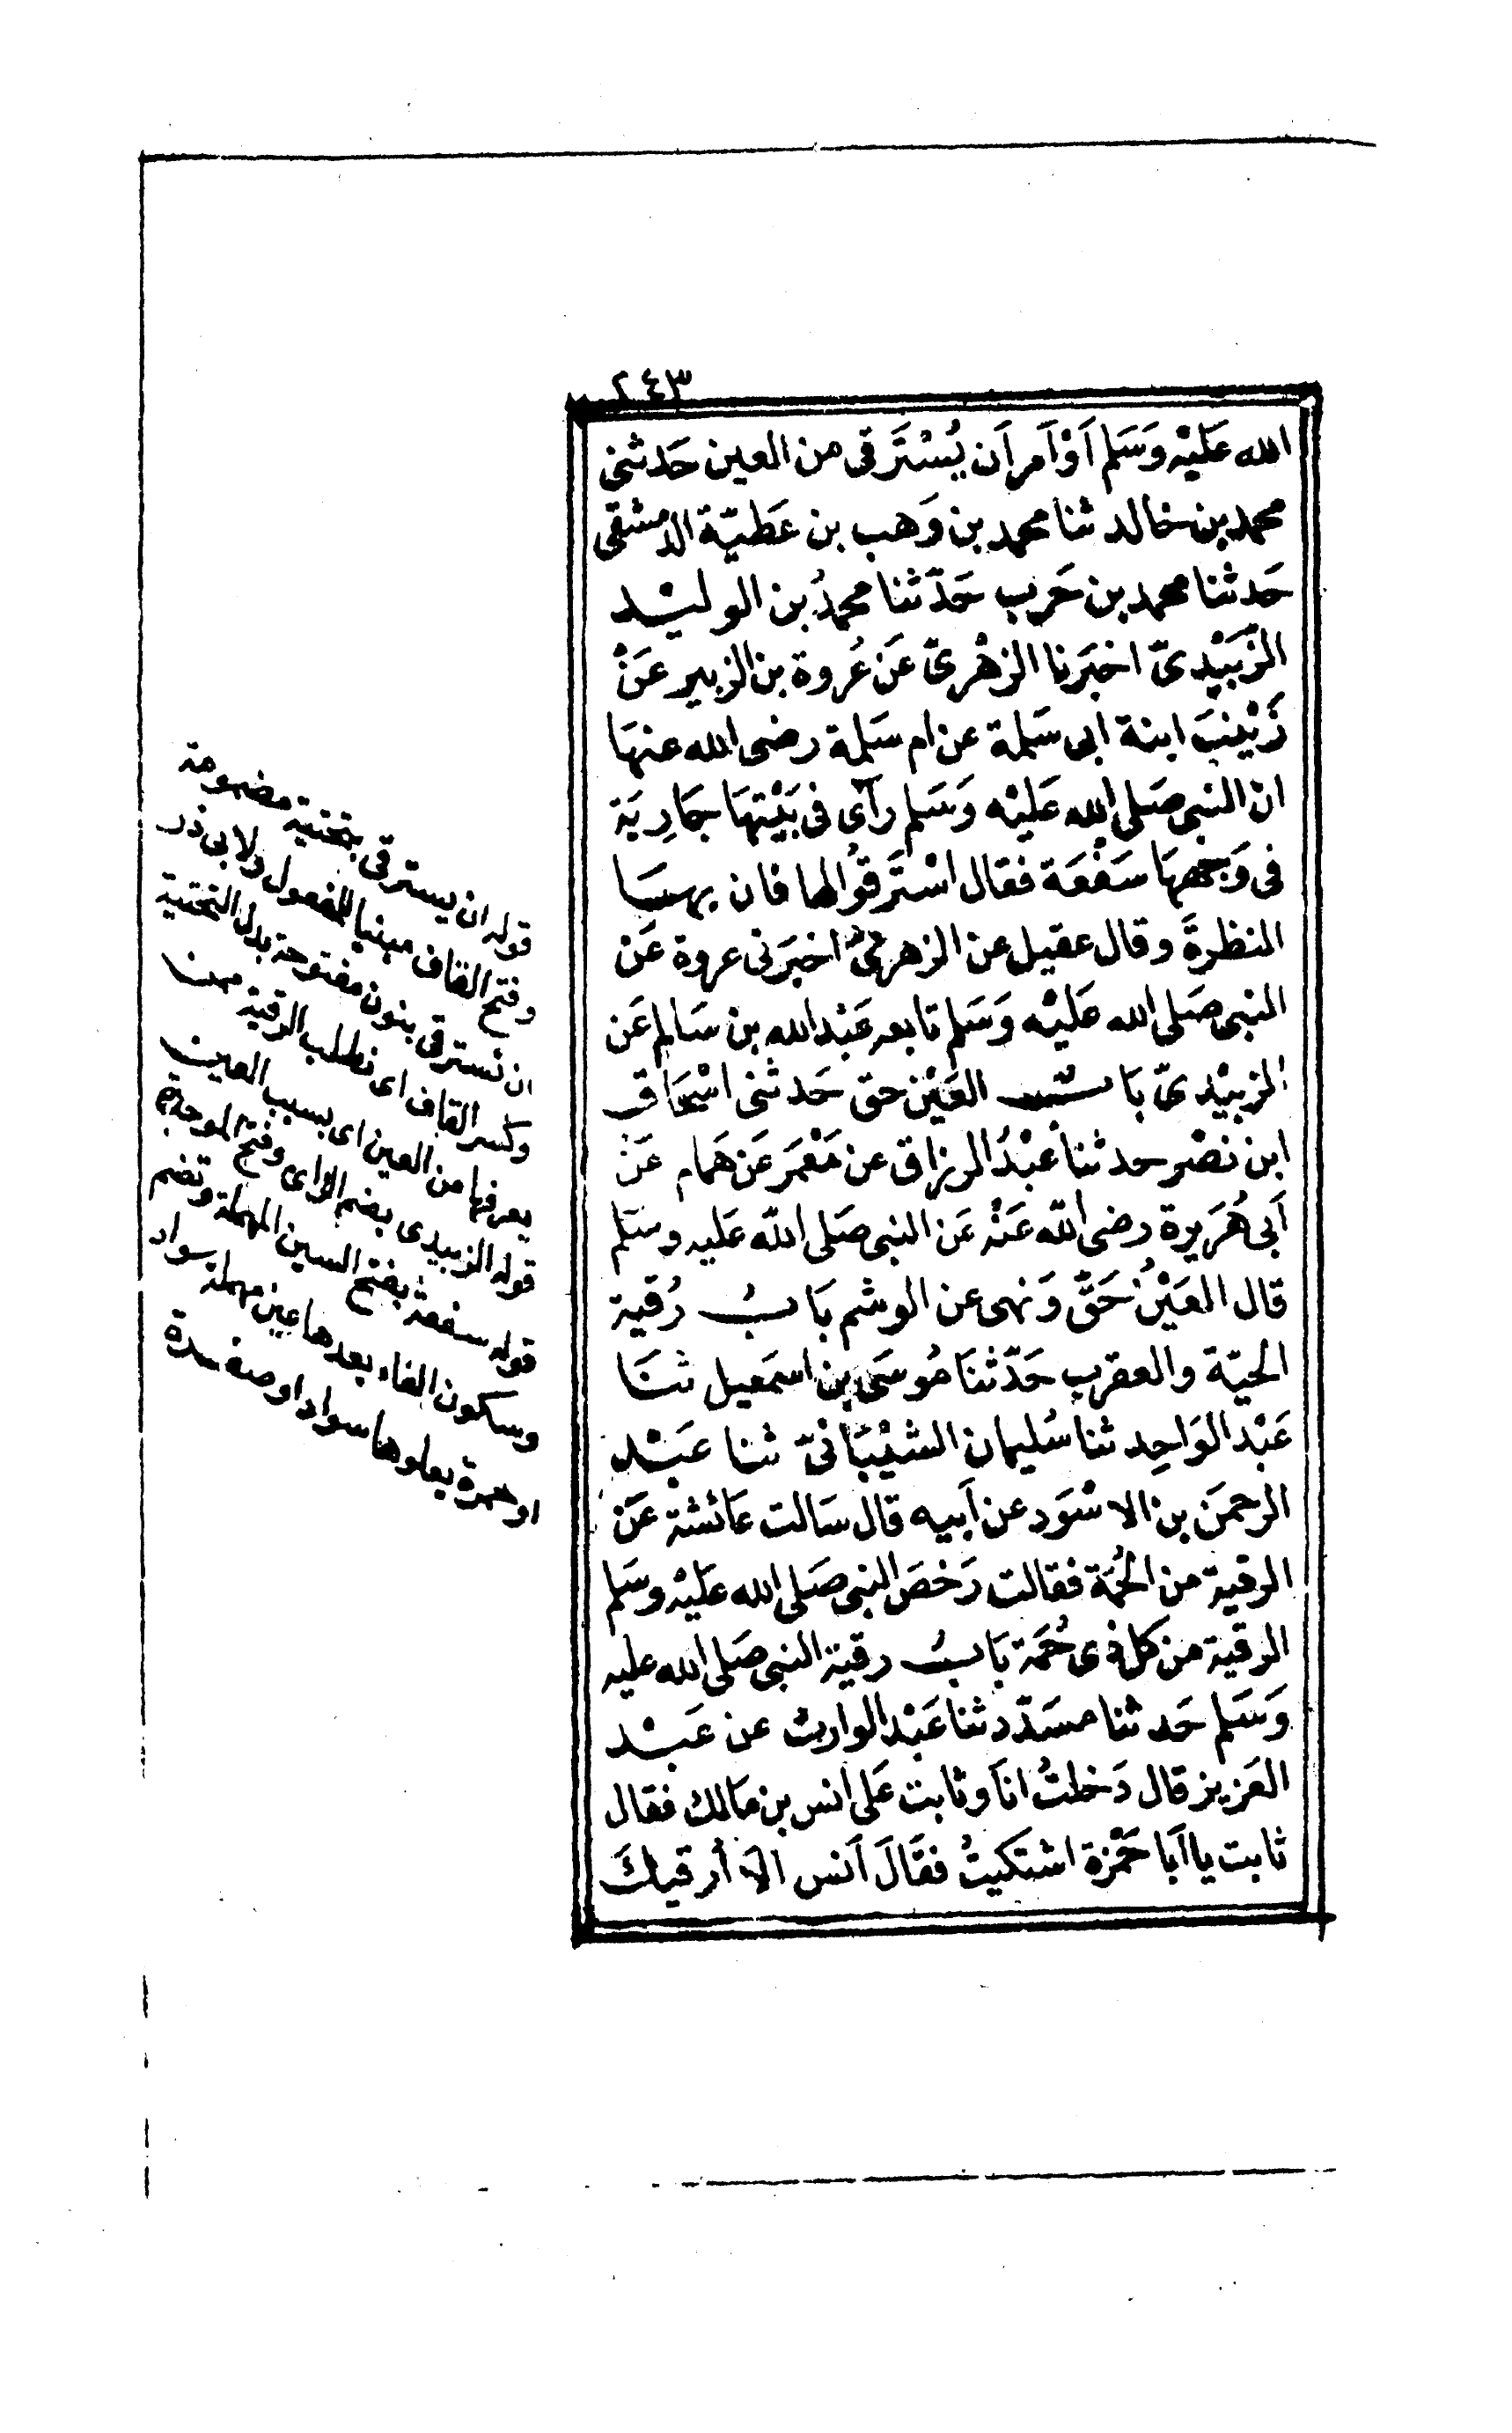 ٢٤٣
الله عَلَيْه وَسَلم اَوْ اَمر اَن يُسْتَرقى من العين حَدثنى
محمد بن خالد ثنا محمد بن وَهب بن عَطيّة الدمشقى
حَدثنا محمد بن حَرب حَدّثنا محمدُ بن الوليْد
الزُّبَيْدىّ اخبَرنا الزهْرىّ عَن عُروة بن الزبير عَنْ
زَيْنبَ ابنة ابى سَلمة عن ام سَلمة رضى الله عنهَا
ان النبى صَلى الله عَليْه وَسَلم رآى فى بَيْتهَا جَارِيَة
فى وَجههَا سَفْعَة فقال اسْتَرقُوا لها فان بهسَا
النظرةَ وقال عقيل عن الزهرىّ اخبَرنى عروة عَن
النبى صَلى الله عَليْه وَسَلم تابعه عَبْد الله بن سَالم عَن
الزبيْدىّ بَابٌ العَيْن حق حَدثنى اسْحَاق
ابن نصْر حدثنا عَبْدُ الرزاق عن مَعْمَر عَن هَمام عَنْ
أبى هُرَيرة رضى اللّه عَنْه عَن النبى صَلى اللّه عَليه وسَلم
قال العَيْنُ حَقّ وَنهى عن الوشم بَابُ رُقية
الحيّة والعقرب حَدّثنَا مُوسَى بن اسمَعيل ثنَا
عَبْد الوَاحِد ثنا سُليمان الشيْبَانىّ ثنا عَبْد
الرحمَن بن الاسْوَد عن اَبيه قال سَالت عَائشة عَن
الرقية من الحُمَة فقالت رَخصَ النبى صَلى الله عَليْه وسَلم
الرقية من كل ذى حُمَة بَابُ رقية النبى صَلى الله عليه
وَسَلم حَدثنا مسَدّد ثنا عَبْد الوارث عن عَبْد
العَزيز قال دَخلتُ انَا وثابت عَلى انس بن مَالك فقال
ثابت يا اَبا حَمْزة اشتكيتُ فقَالَ اَنس الَا أرقيكَ
قوله ان يسترقى بتحتية مضمومة
وفتح القاف مبنيا للمفعول ولابى ذر
ان نسترقى بنون مفتوحة بدل التحتية
وكسر القاف اى نطلب الرقية ممن
يعرفها من العين اى بسبب العين
قوله الزبيدى بضم الزاى وفتح الموحدة
قوله سفعة بفتح السين المهملة وتضم
وسكون الفاء بعدها عين مهملة سواد
او حمرة يعلوها سواد او صفرة